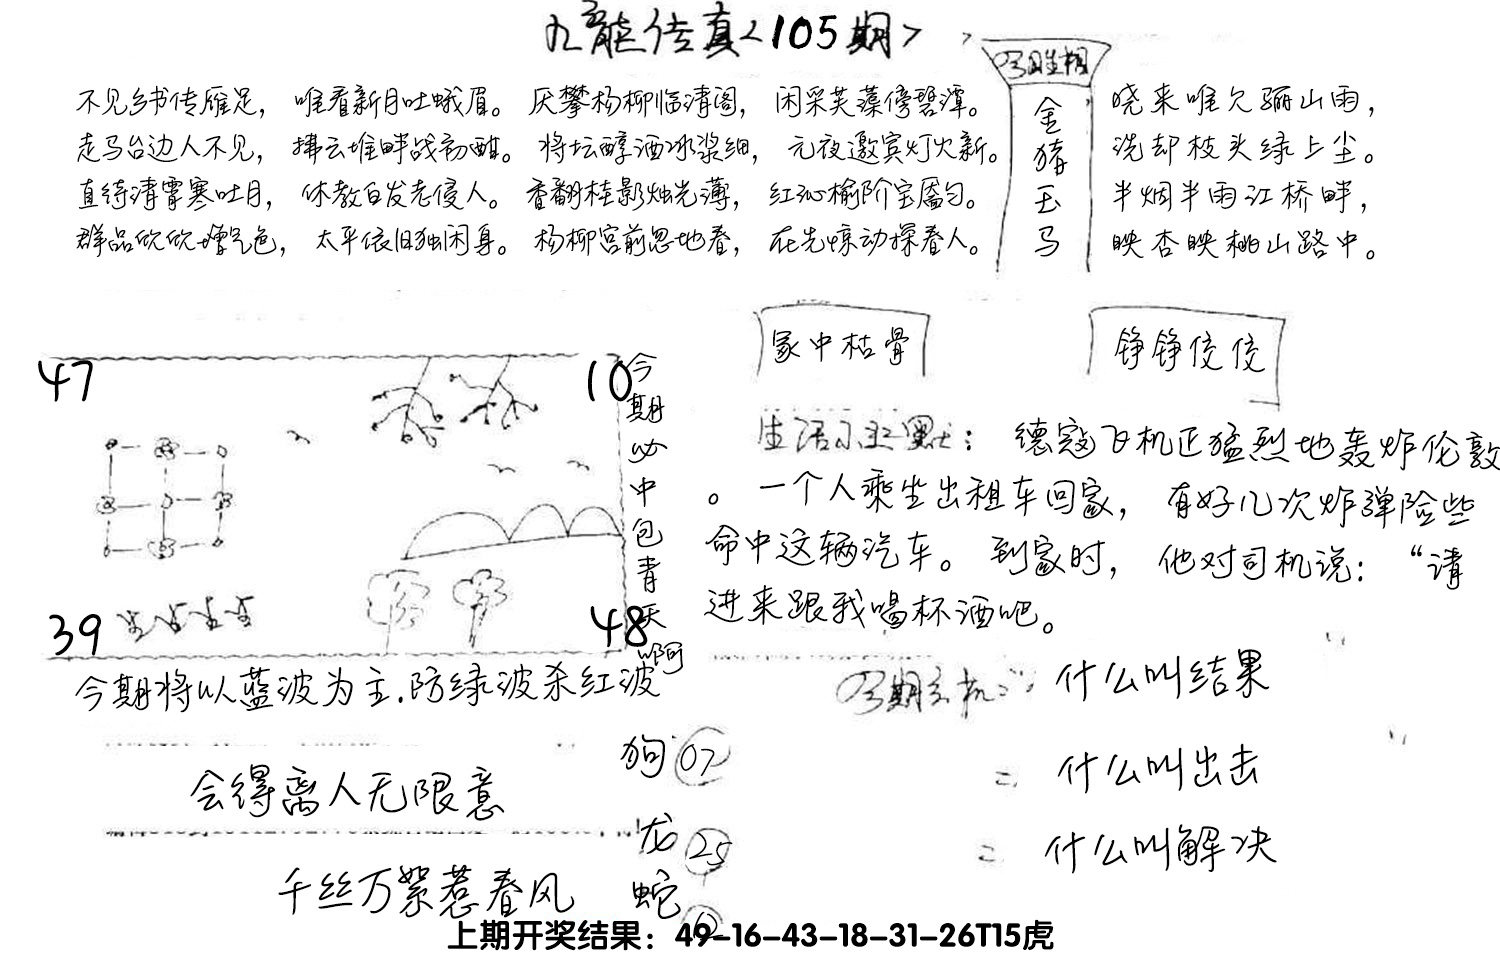 九龍传真<105期>
不见乡书传雁足，唯看新月吐蛾眉。厌攀杨柳临清阁，闲采芙蕖傍碧潭。
走马台边人不见，拂云堆畔战初酣。将坛醇酒冰浆细，元夜邀宾灯火新。
直待清霄寒吐月，休教白发老侵人。香翻桂影烛光薄，红沁榆阶宝靥匀。
群品欣欣增气色，太平依旧独闲身。杨柳宫前忽地春，在先惊动探春人。
今期生相
金猪玉马
晓来唯欠骊山雨，
洗却枝头绿上尘。
半烟半雨江桥畔，
映杏映桃山路中。
冢中枯骨
铮铮佼佼
47
10
39
48
今期必中包青天啊
今期将以蓝波为主.防绿波杀红波
生活小幽默：德寇飞机正猛烈地轰炸伦敦
。一个人乘坐出租车回家，有好几次炸弹险些
命中这辆汽车。到家时，他对司机说：“请
进来跟我喝杯酒吧。
今期玄机：什么叫结果
二 什么叫出击
二 什么叫解决
会得离人无限意
千丝万絮惹春风
狗 07
龙 25
蛇
上期开奖结果：49-16-43-18-31-26T15虎